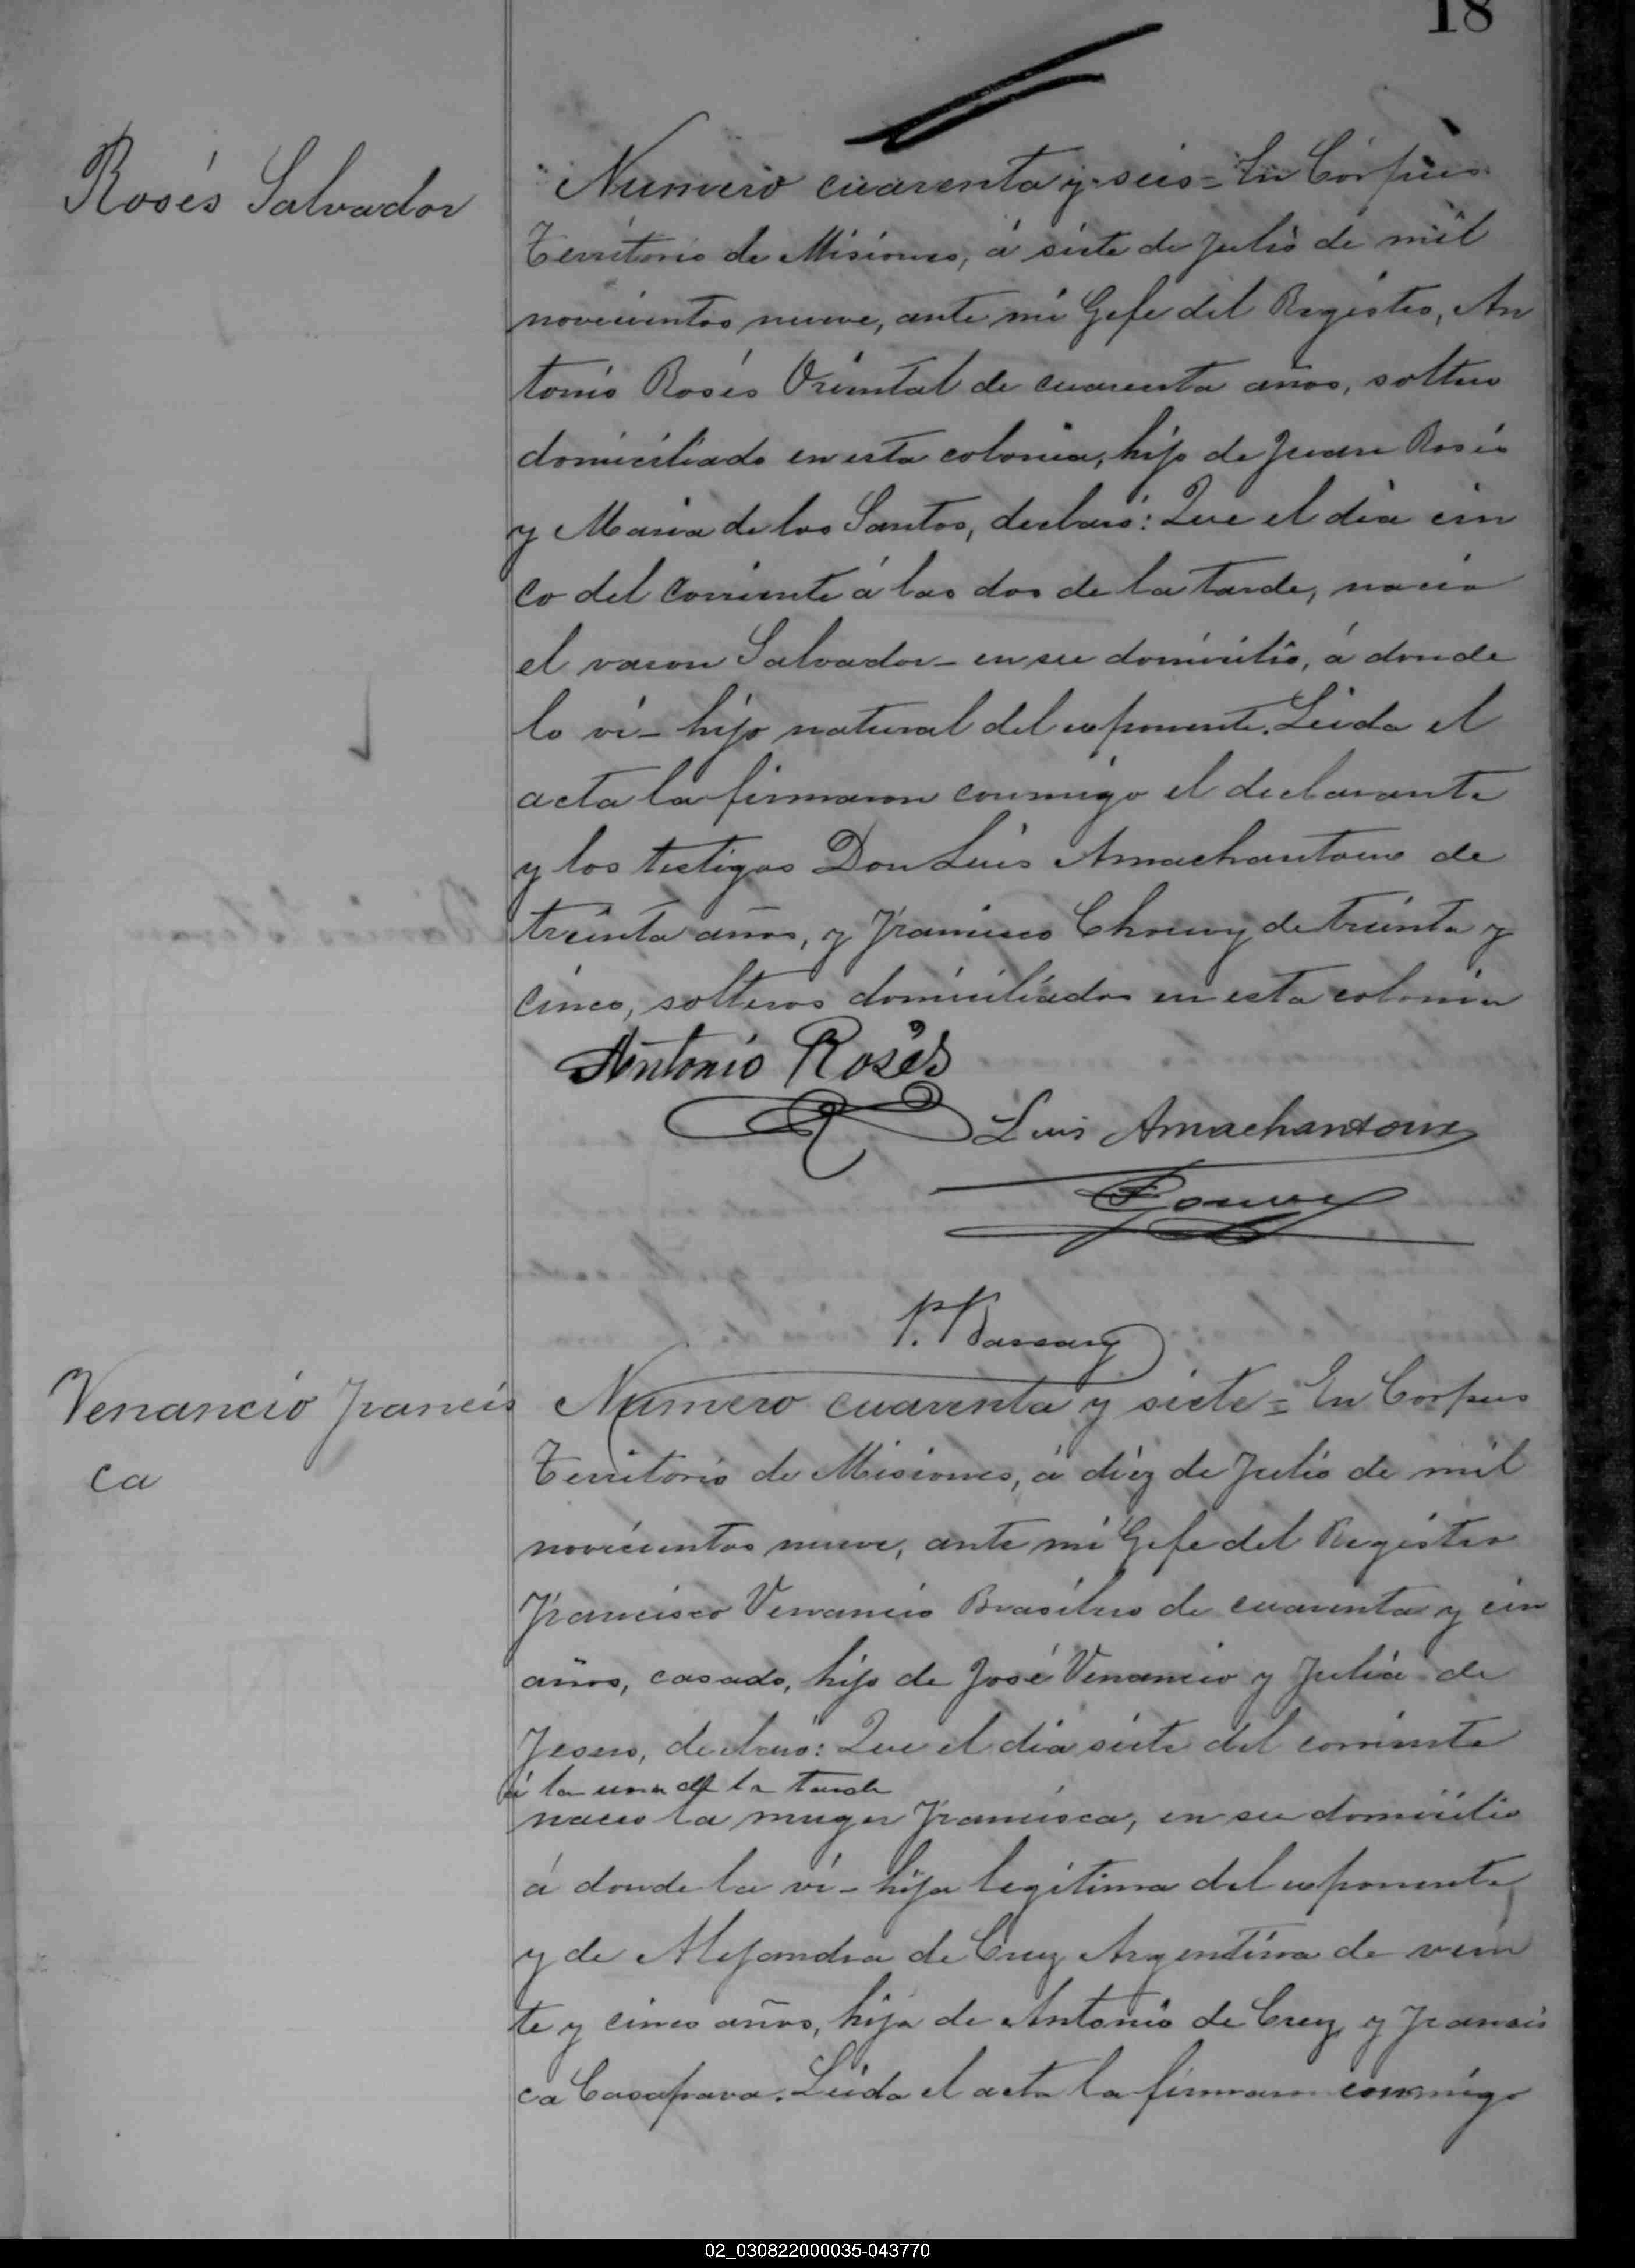 18
Rosés Salvador
Numero cuarenta y seis = En Córpus
Territorio de Misiones, á siete de Julio de mil
novecientos nueve, ante mi Gefe del Registro, An
tonio Rosés Oriental de cuarenta años, soltero
domiciliado en esta colonia, hijo de Juan Rosés
y Maria de los Santos, declaró: Que el dia cin
co del corriente á las dos de la tarde, nació
el varon Salvador - en su domicilio, á donde
lo vi - hijo natural del esponente. Leida el
acta la firmaron conmigo el declarante
y los testigos Don Luis Amachantoux de
treinta años, y Francisco de treinta y
cinco, solteros domiciliados en esta colonia
Antonio Rosés
Luis Amachantoux
P.
Venancio Francis
ca
Numero cuarenta y siete = En Corpus
Territorio de Misiones, á diez de Julio de mil
novecientos nueve, ante mi Gefe del Registro
Francisco Venancio Brasilero de cuarenta y cin
años, casado, hijo de José Venancio y Julia de
Jesus, declaró: Que el dia siete del corriente
á la una de la tarde
nació la muger Francisca, en su domicilio
á donde la vi - hija legitima del esponente
y de Alejandra de Cruz Argentina de vein
te y cinco años, hija de Antonio de Cruz y Francis
ca Casapava. Leida el acta la firmaron conmigo
02_030822000035-043770